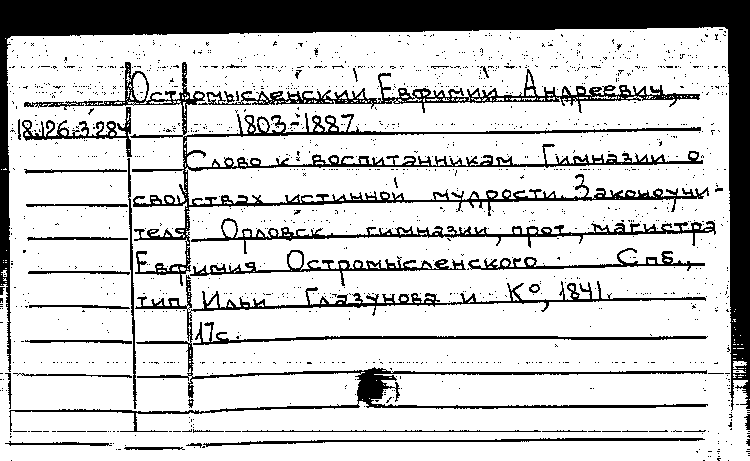 Остромысленский, Евфимий Андреевич,
18.126.3.284 1803-1887.
Слово к воспитанникам Гимназии о
свойствах истинной мудрости. Законоучи-
теля Орловск. гимназии, прот., магистра
Евфимия Остромысленского. Спб.,
тип. Ильи Глазунова и К°, 1841.
17с.